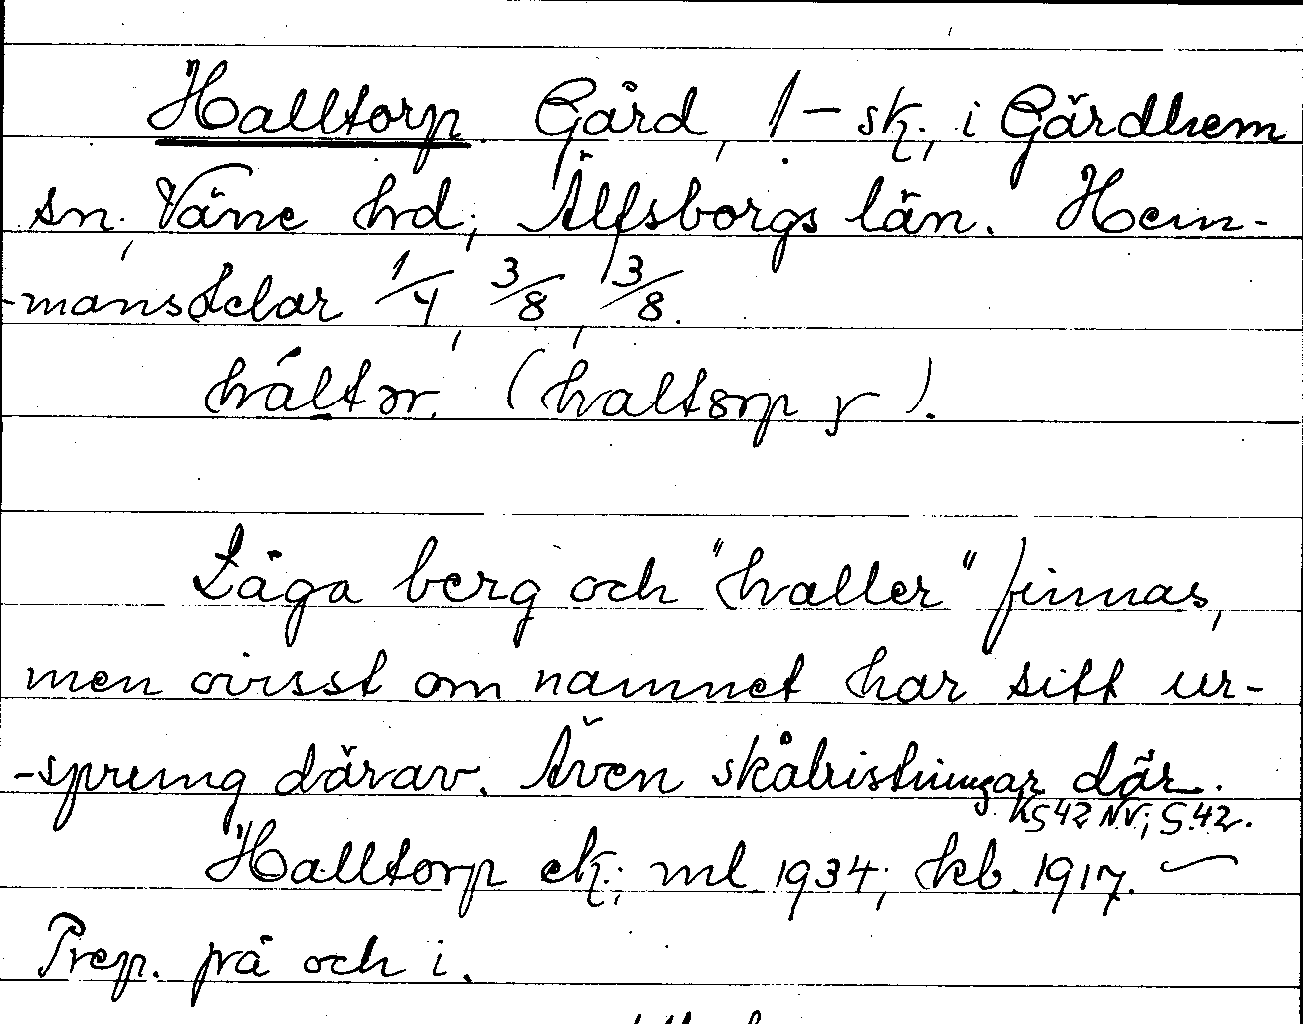 Halltorp. Gård, 1 - sk., i Gärdhem
sn., Väne hd., Älfsborgs län. Hem-
-mansdelar 1/4, 3/8, 3/8.
háltɔr. (haltɔrp r).
Låga berg och "haller" finnas,
men ovisst om namnet har sitt ur-
-sprung därav. Även skålristningar där.
KS 42 NV; G. 42.
Halltorp ek.; ml 1934; kb. 1917. —
Prep. på och i.